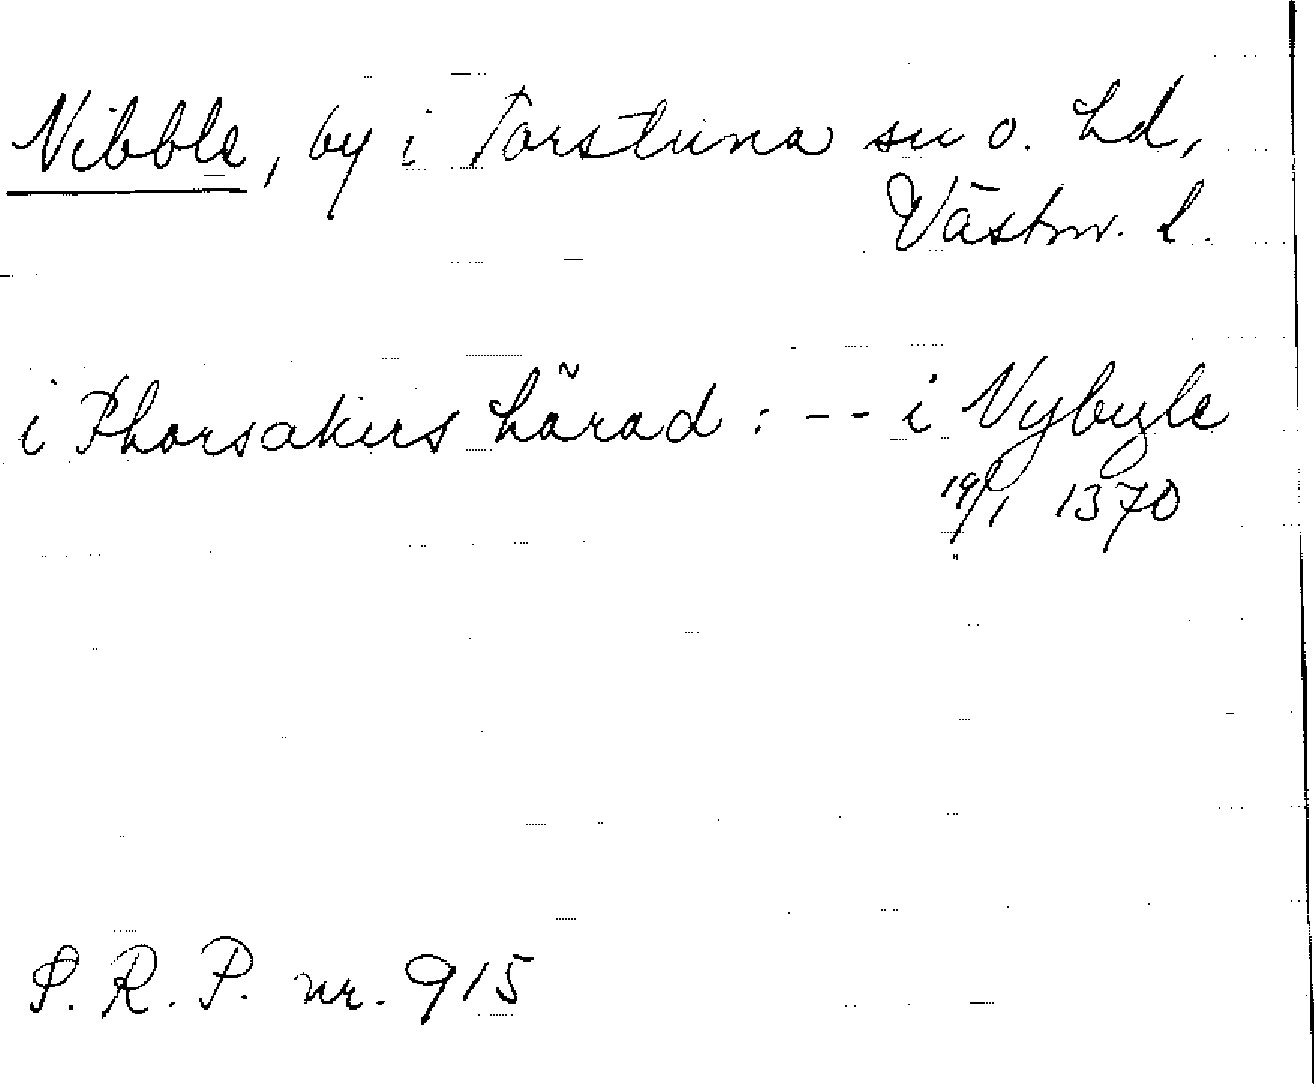 Nibble, by i Torstuna sn o. hd,
Västm. l.
i Thorsakirs hårad : -- i Nybyle
19/1 1370
S. R. P. nr. 915